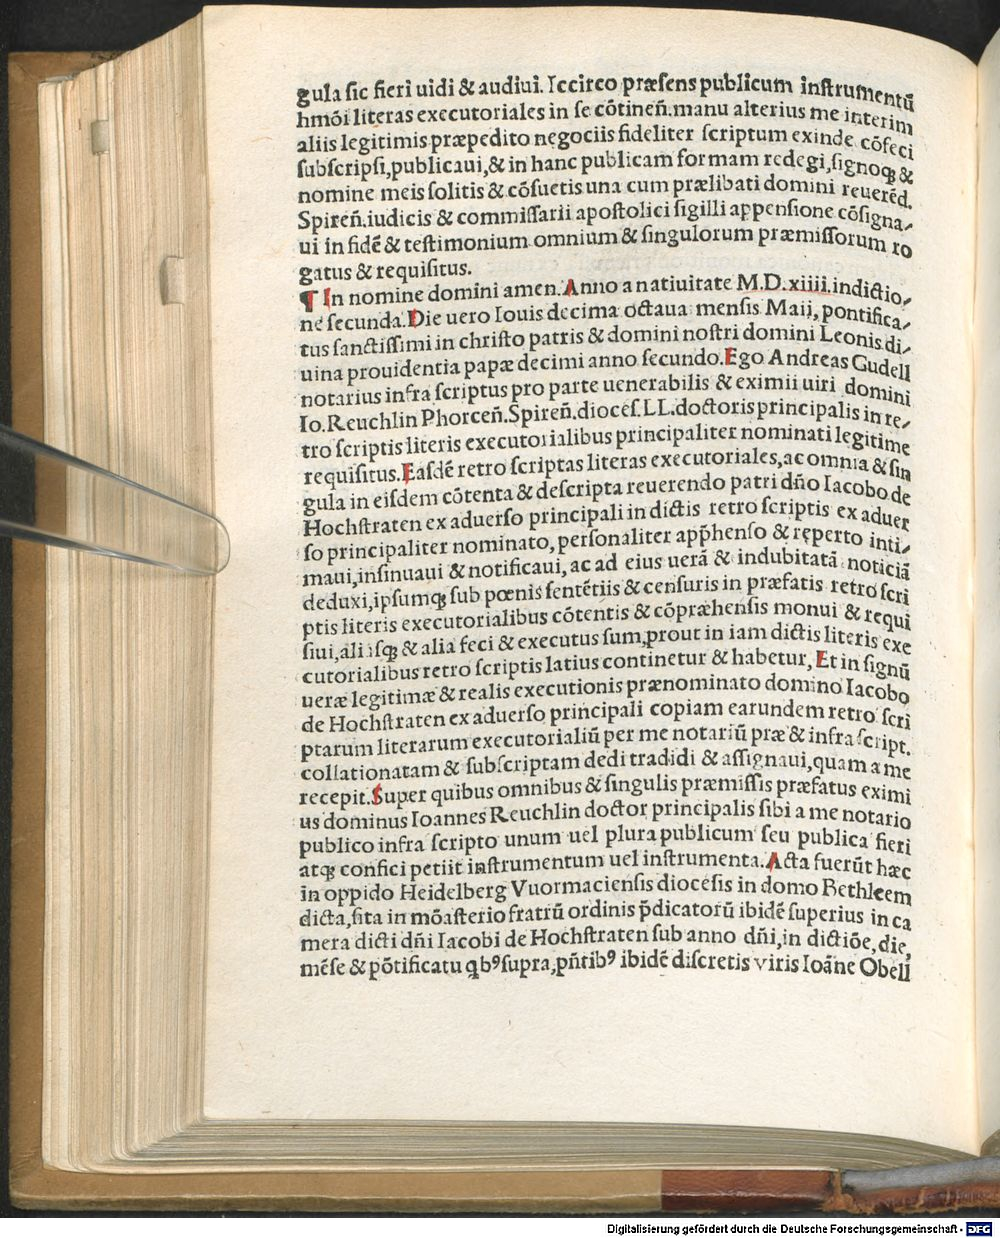 gula sic fieri uidi & audiui. Iccirco præsens publicum instrumentū
hmōi literas executoriales in se cōtineñ. manu alterius me interim
aliis legitimis præpedito negociis fideliter scriptum exinde cōfeci
subscripsi, publicaui, & in hanc publicam formam redegi, signoqꝫ &
nomine meis solitis & cōsuetis una cum prælibati domini reuerēd.
Spireñ. iudicis & commissarii apostolici sigilli appensione cōsigna⸗
ui in fidē & testimonium omnium & singulorum præmissorum ro
gatus & requisitus.
¶ In nomine domini amen. Anno a natiuitate M.D.xiiii. indictio⸗
ne secunda. Die uero Iouis decima octaua mensis Maij, pontifica⸗
tus sanctissimi in christo patris & domini nostri domini Leonis di⸗
uina prouidentia papæ decimi anno secundo. Ego Andreas Gudell
notarius infra scriptus pro parte uenerabilis & eximii uiri domini
Io. Reuchlin Phorceñ. Spireñ. dioces. LL. doctoris principalis in re⸗
tro scriptis literis executorialibus principaliter nominati legitime
requisitus. Easdē retro scriptas literas executoriales, ac omnia & sin
gula in eisdem cōtenta & descripta reuerendo patri dño Iacobo de
Hochstraten ex aduerso principali in dictis retro scriptis ex aduer
so principaliter nominato, personaliter app̄henso & reperto inti⸗
maui, insinuaui & notificaui, ac ad eius uerā & indubitatā noticiā
deduxi, ipsumqꝫ sub pœnis sentētiis & censuris in præfatis retro scri
ptis literis executorialibus cōtentis & cōpræhensis monui & requi
siui, aliisqꝫ & alia feci & executus sum, prout in iam dictis literis exe
cutorialibus retro scriptis latius continetur & habetur, Et in signū
ueræ legitimæ & realis executionis prænominato domino Iacobo
de Hochstraten ex aduerso principali copiam earundem retro scri
ptarum literarum executorialiū per me notariū præ & infra script.
collationatam & subscriptam dedi tradidi & assignaui, quam a me
recepit. Super quibus omnibus & singulis præmissis præfatus eximi
us dominus Ioannes Reuchlin doctor principalis sibi a me notario
publico infra scripto unum uel plura publicum seu publica fieri
atqꝫ confici petiit instrumentum uel instrumenta. Acta fuerūt hæc
in oppido Heidelberg Vuormaciensis diocesis in domo Bethleem
dicta, sita in mōasterio fratrū ordinis p̄dicatorū ibidē superius in ca
mera dicti dñi Iacobi de Hochstraten sub anno dñi, in dictiōe, die,
mēse & pōtificatu qbꝰ supra, pñtibꝰ ibidē discretis viris Ioāne Obell
Digitalisierung gefördert durch die Deutsche Forschungsgemeinschaft - DFG